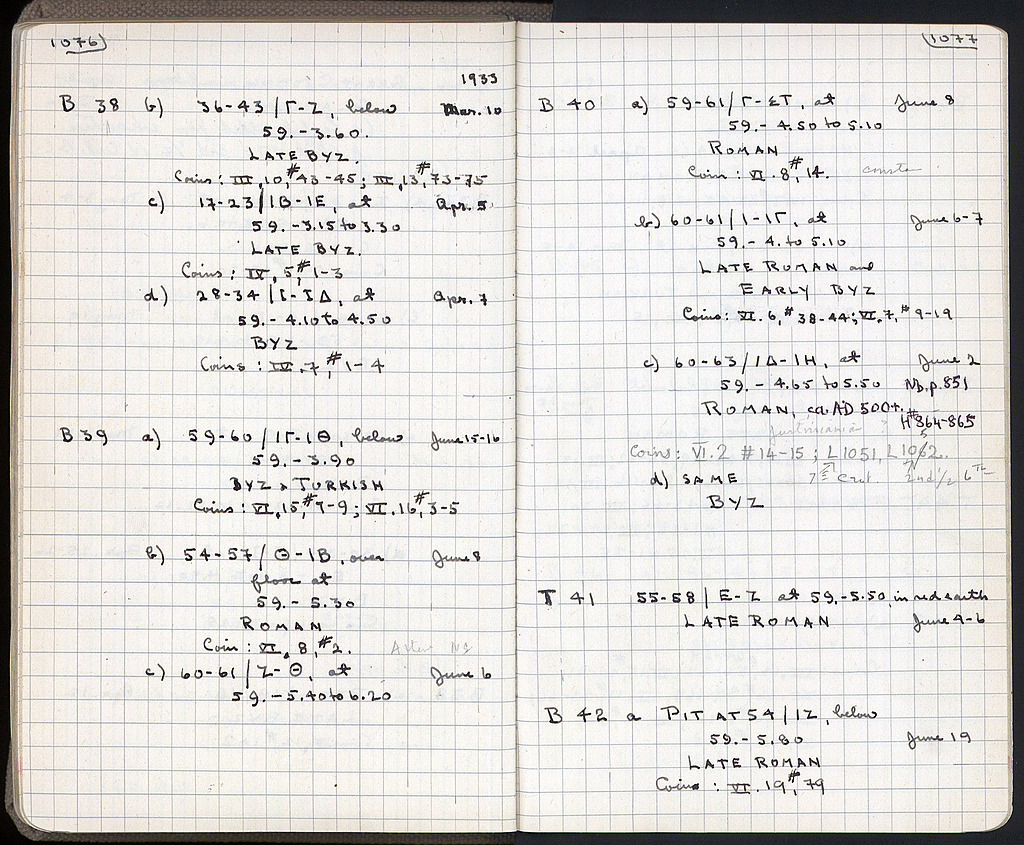 1076
1933
B 38 b) 36-43/Γ-Ζ, below Mar. 10
59.-3.60.
LATE BYZ.
Coins: III.10,#43-45; III.13,#73-75
c) 17-23/ΙΒ-ΙΕ, at Apr. 5
59.-3.15 to 3.30
LATE BYZ.
Coins: IV, 5,#1-3
d) 28-34/Ι-ΙΔ, at Apr. 7
59.-4.10 to 4.50
BYZ
Coins: IV.7,#1-4
B 39 a) 59-60/ΙΓ-ΙΘ, below June 15-16
59.-3.90
BYZ & TURKISH
Coins: VI.15,#7-9; VI.16,#3-5
b) 54-57/Θ-ΙΒ, over June 8
floor at
59.-5.30
ROMAN
Coin: VI, 8,#2.
c) 60-61/Ζ-Θ, at June 6
59.-5.40 to 6.20
1077
B 40 a) 59-61/Γ-ΣΤ, at June 8
59.-4.50 to 5.10
ROMAN
Coin: VI.8,#14.
b) 60-61/Ι-ΙΓ, at June 6-7
59.-4. to 5.10
LATE ROMAN and
EARLY BYZ
Coins: VI.6,#38-44; VI.7,#9-19
c) 60-63/ΙΔ-ΙΗ, at June 2
59.-4.65 to 5.50 Nb.p.851
ROMAN, ca. AD 500+. #864-865
Coins: VI.2 #14-15; L1051, L1062.
d) SAME 7th Cent. 2nd 1/2 6th
BYZ
T 41 55-58/Ε-Ζ at 59.-5.50, in red earth
LATE ROMAN June 4-6
B 42 a PIT AT 54/ΙΖ, below
59.-5.80 June 19
LATE ROMAN
Coins: VI.19,#79